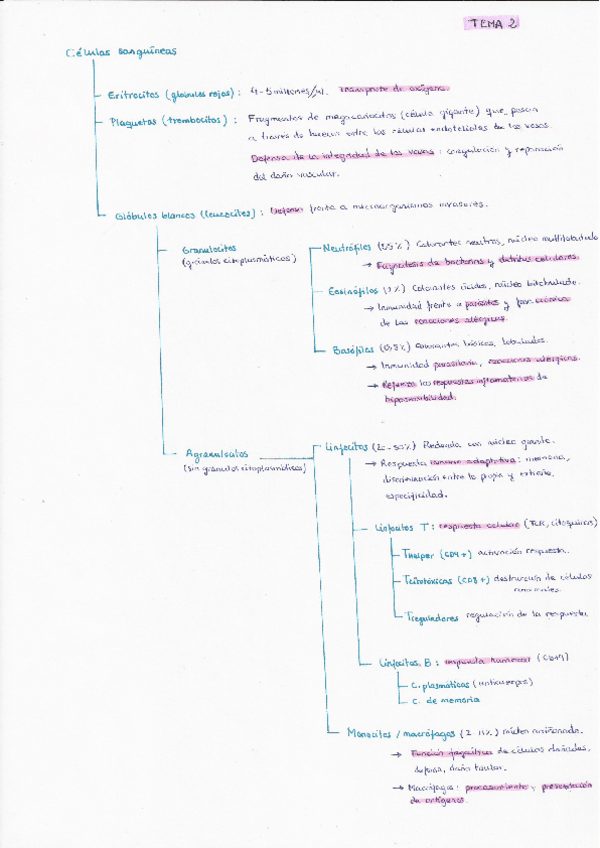 TEMA 2
Células sanguíneas
Eritrocitos (glóbulos rojos): 4-5 millones/µl. Transporte de oxígeno.
Plaquetas (trombocitos): Fragmentos de megacariocitos (célula gigante) que pasan
a través de huecos entre las células endoteliales de los vasos.
Defensa de la integridad de los vasos: coagulación y reparación
del daño vascular.
Glóbulos blancos (leucocitos): Defensa frente a microorganismos invasores.
Granulocitos
(gránulos citoplasmáticos)
Neutrófilos (55%) Colorantes neutros, núcleo multilobulado
→ Fagocitosis de bacterias y detritus celulares.
Eosinófilos (2%) Colorantes ácidos, núcleo bilobulado.
→ Inmunidad frente a parásitos y fase crónica
de las reacciones alérgicas.
Basófilos (0,5%) Colorantes básicos, lobulados.
→ Inmunidad parasitaria, reacciones alérgicas.
→ Refuerzo las respuestas inflamatorias de
hipersensibilidad.
Agranulocitos
(sin gránulos citoplasmáticos)
Linfocitos (20-50%) Redondo con núcleo grande.
→ Respuesta inmune adaptativa: memoria,
discriminación entre lo propio y extraño,
especificidad.
Linfocitos T: respuesta celular (TCR, citoquinas)
T helper (CD4+) activación respuesta.
T citotóxicos (CD8+) destrucción de células
T reguladores regulación de la respuesta
Linfocitos B: respuesta humoral
C. plasmáticas (anticuerpos)
C. de memoria
Monocitos / macrófagos (2-11%) núcleo arriñonado.
→ Función fagocítica de células dañadas,
defensa, daño tisular.
→ Macrófagos: procesamiento y presentación
de antígenos.